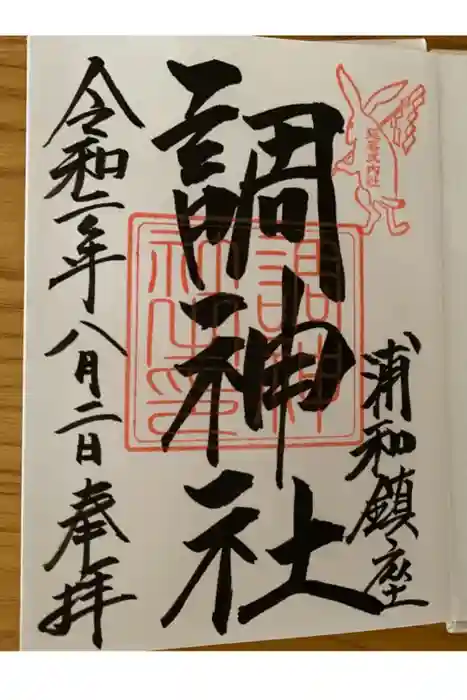 浦和鎮座
調神社
調神社之印
令和二年八月二日奉拝